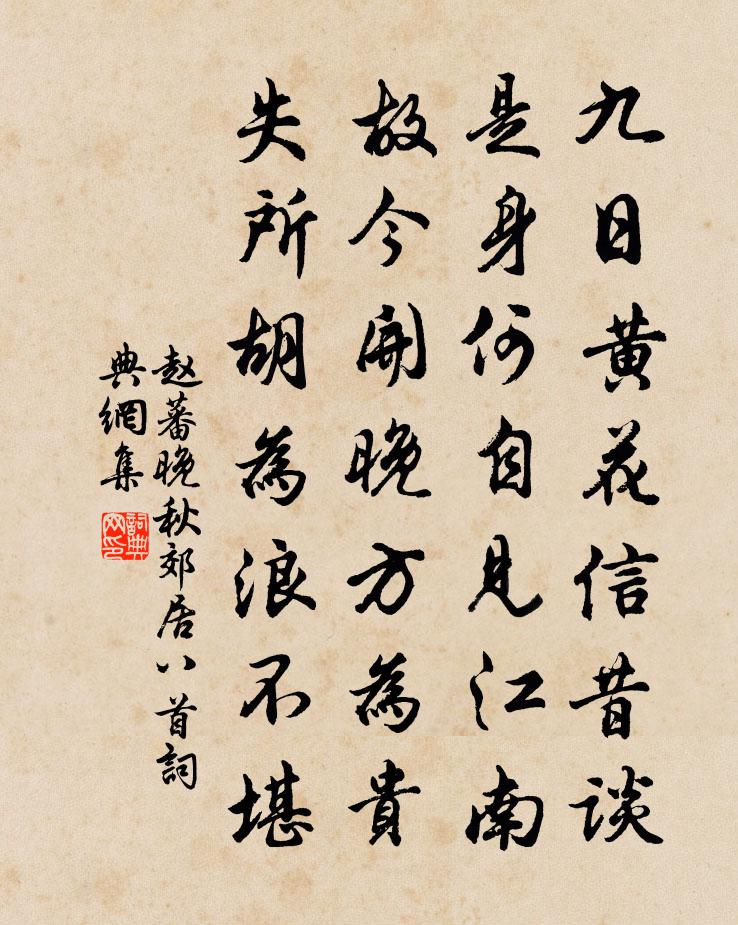 九日黄花信昔谈
是身何自見江南
故今開晚方為貴
失所胡為浪不堪
赵蕃晚秋郊居八首詞
典網集
詞典网印